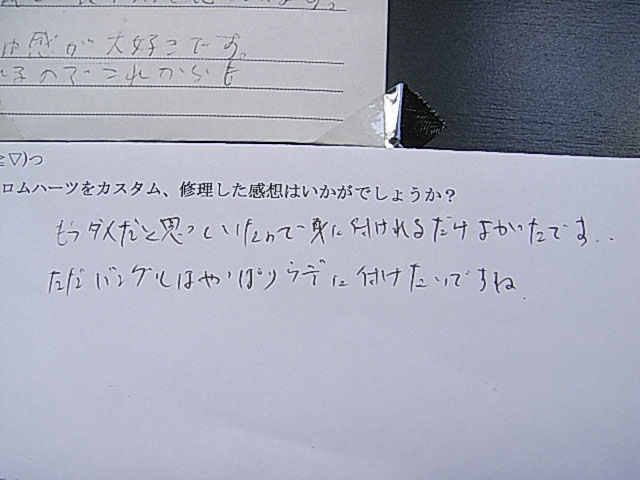 感が大好きです。
るのでこれからも
≧▽)つ
ロムハーツをカスタム、修理した感想はいかがでしょうか？
もうダメだと思っていたので身に付けれるだけよかったです..
ただバングルはやっぱりウデに付けたいですね